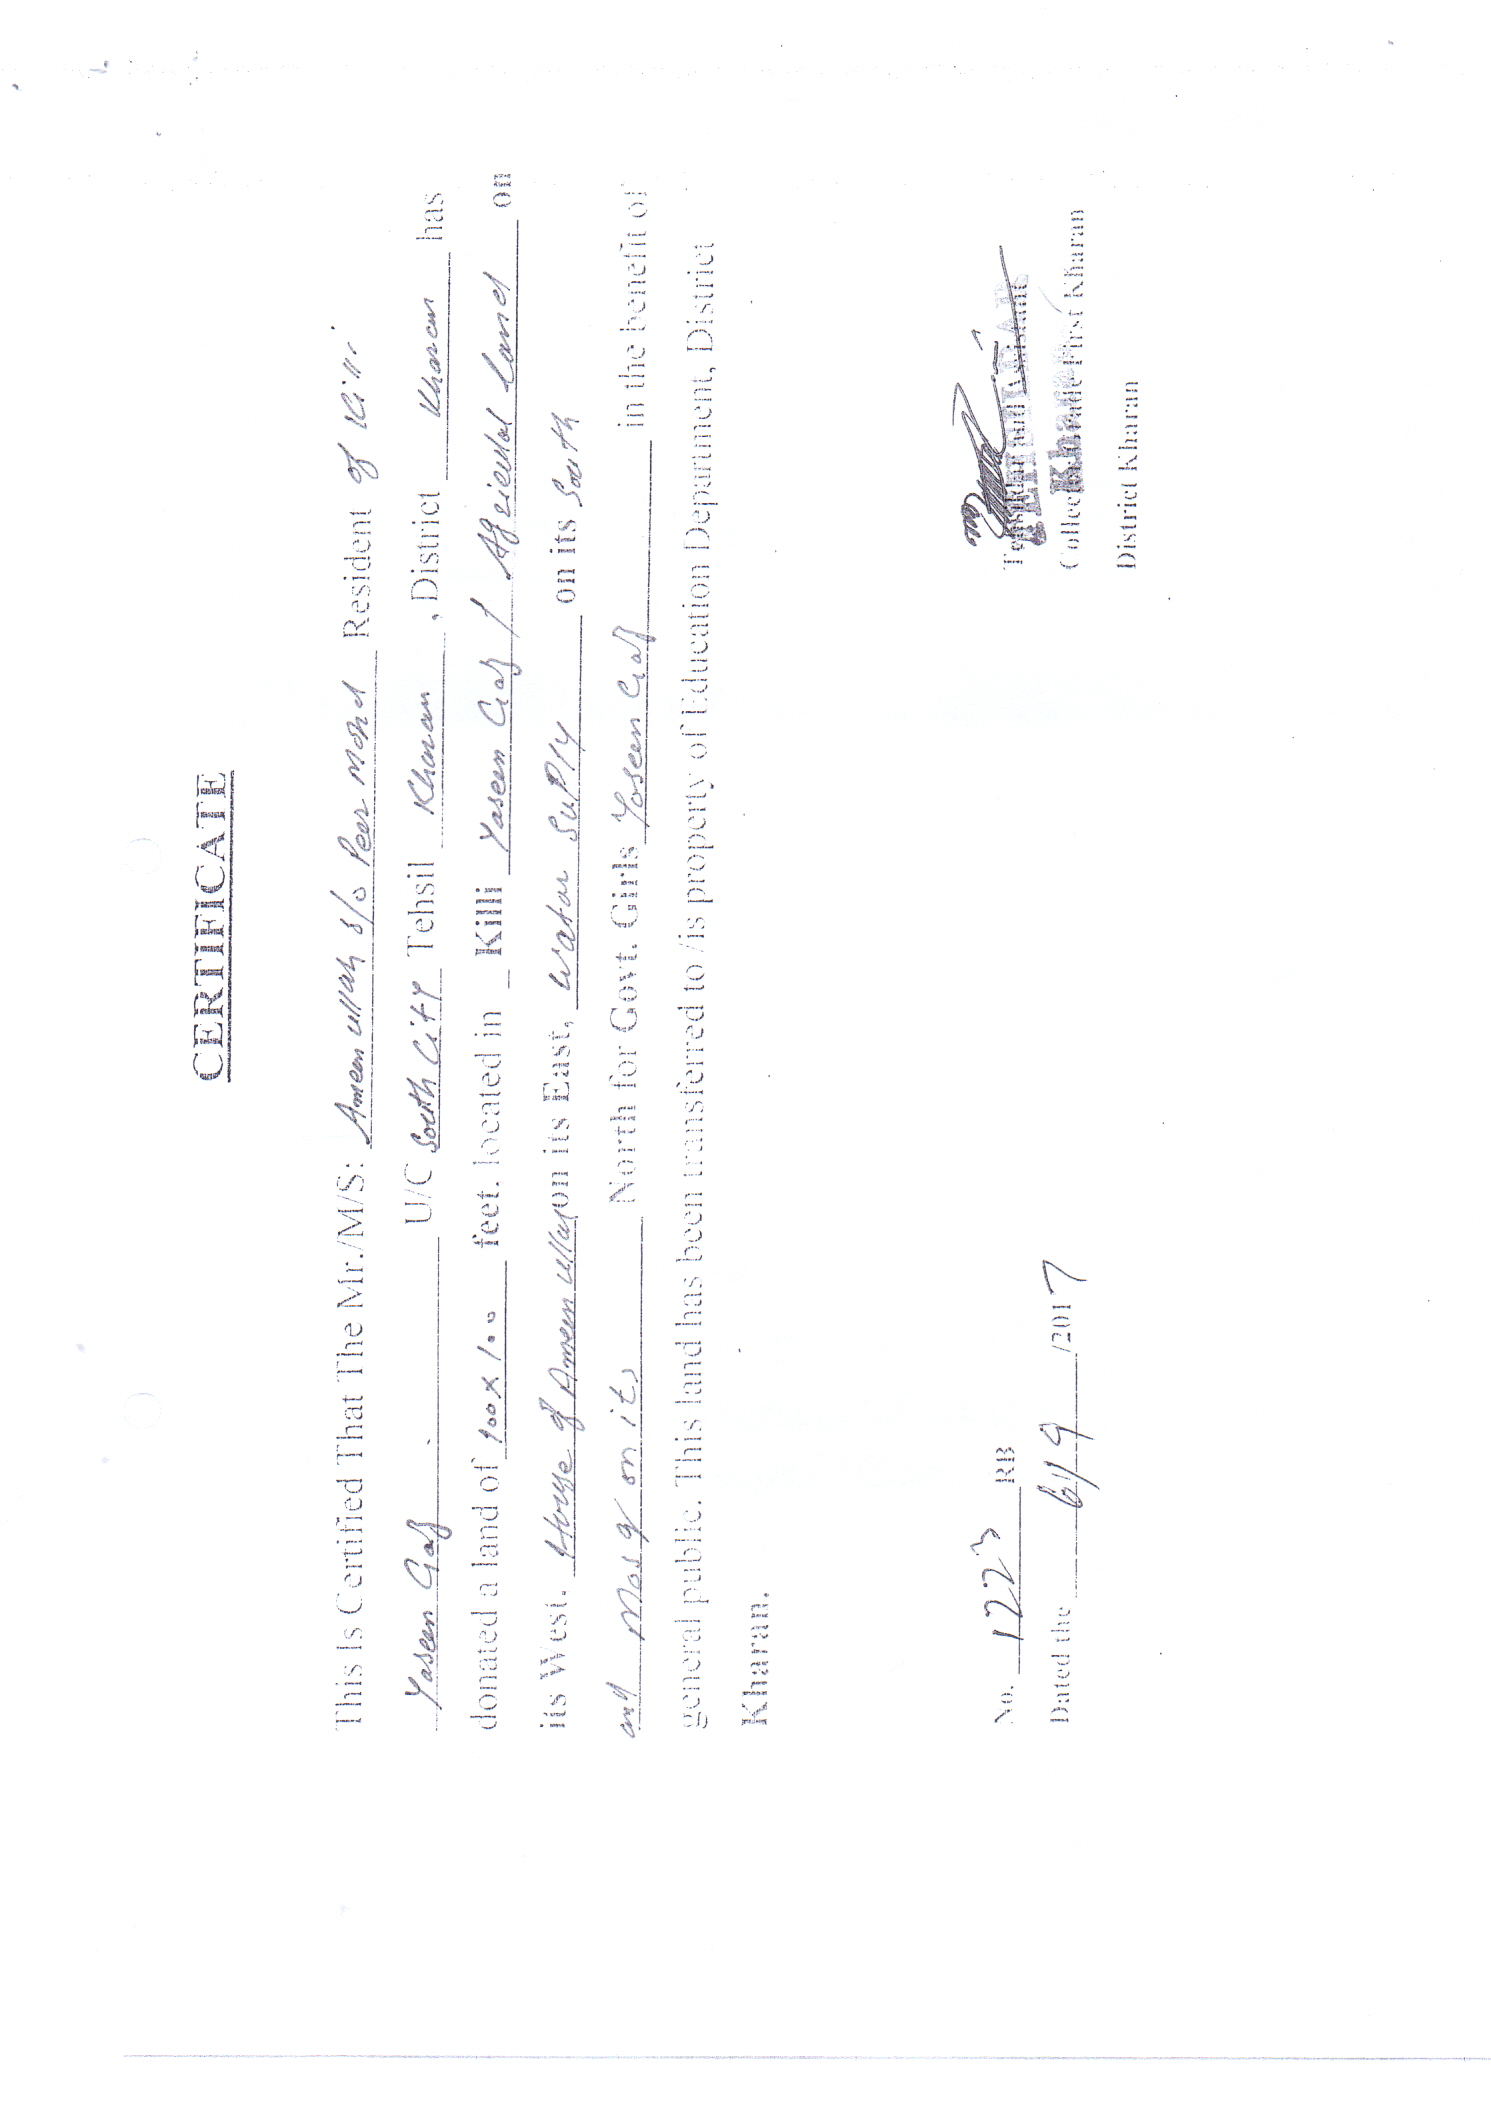 CERTIFICATE
This is Certified That The Mr./M/S: Ameen ullah S/o Peer Mohd Resident of Killi
Yaseen Gaz U/C South City Tehsil Kharan , District Kharan has
donated a land of 100 x 100 feet. located in Killi Yaseen Gaz / land on
its West. House of Ameen ullah on its East, Water Suply on its South
and Masq on its North for Govt. Girls Yaseen Gaz in the benefit of
general public. This land has been transferred to /is property of Education Department, District
Kharan.
No. 1223 RB
Dated the 6/19 /2017
TEHSILDAR
Kharan
District Kharan